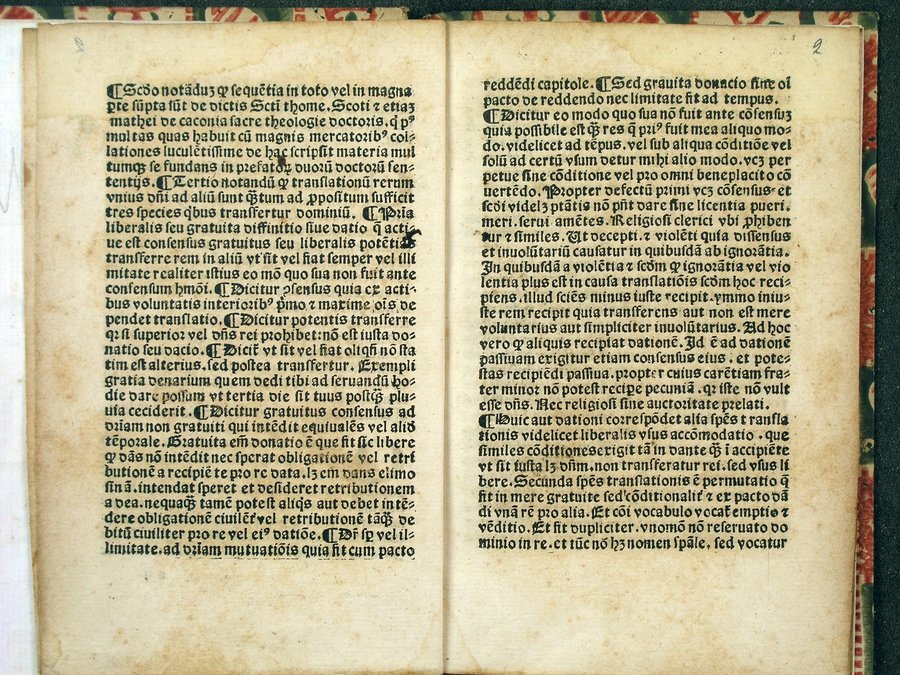 ¶Scðo notãduꝫ ꝙ sequẽtia in toto vel in magna
ꝑte sũpta sũt de dictis Scti thome. Scoti ⁊ etiaꝫ
mathei de caconia sacre theologie doctoris. q̃ pᵉ
multas quas habuit cũ magnis mercatoribꝰ col⸗
lationes luculẽtissime de hac scripsit materia mul
tumqꝫ se fundans in prefatoꝝ duorũ doctorũ sen⸗
tentijs. ¶Tertio notandũ ꝙ translationũ rerum
vnius dñi ad aliũ sunt q̃tum ad ꝓpositum sufficit
tres species q̃bus transfertur dominiũ. ¶Pria
liberalis seu gratuita diffinitio siue datio q̃ acti⸗
ue est consensus gratuitus seu liberalis potẽtis
transferre rem in aliũ vt sit vel fiat semper vel illi
mitate realiter istius eo mõ quo sua non fuit ante
consensum hmõi. ¶Dicitur ꝯsensus quia ex acti⸗
bus voluntatis interioribꝰ p̃mo ⁊ maxime oĩs de
pendet translatio. ¶Dicitur potentis transferre
qꝛ si superior vel dñs rei prohibet: nõ est iusta do⸗
natio seu dacio. ¶Diciť vt sit vel fiat oliqñ nõ sta
tim est alterius. sed postea transfertur. Exempli
gratia denarium quem dedi tibi ad seruandũ ho⸗
die dare possum vt tertia die sit tuus postꝙ̃ plu⸗
uia ceciderit. ¶Dicitur gratuitus consensus ad
dr̃iam non gratuiti qui intẽdit equiualẽs vel aliđ
tẽporale. Gratuita em̃ donatio ẽ que fit sic libere
ꝙ dãs nõ intẽdit nec sperat obligationẽ vel retri
butionẽ a recipiẽte pro re data. lꝫ em dans elimo
sinã. intendat speret et desideret retributionem
a deo. nequaꝙ̃ tamẽ potest aliqs aut debet intẽ⸗
dere obligationẽ ciuilẽ vel retributionẽ tãꝙ̃ de
bitũ ciuiliter pro re vel eiꝰ datiõe. ¶Dr̃ sꝑ vel il⸗
limitate. ad dr̃iam mutuatiõis quia fit cum pacto
2
reddẽdi capitole. ¶Sed grauita donacio sine oĩ
pacto de reddendo nec limitate fit ad tempus.
¶Dicitur eo modo quo sua nõ fuit ante cõsensuꝫ
quia possibile est ꝙ̃ res q̃ priꝰ fuit mea aliquo mo⸗
do. videlicet ad tẽpus. vel sub aliqua cõditiõe vel
solũ ad certũ vsum detur mihi alio modo. vcꝫ per
petue sine cõditione vel pro omni beneplacito cõ
uertẽdo. Propter defectũ primi vcꝫ cõsensus et
scði videlꝫ ptãtis nõ pñt dare sine licentia pueri.
meri. serui amẽtes. Religiosi clerici vbi ꝓhiben
tur ⁊ similes. Ut decepti. ⁊ violẽti quia dissensus
et inuolũtariũ causatur in quibusdã ab ignorãtia.
In quibusdã a violẽtia ⁊ scðm ꝙ ignorãtia vel vio
lentia plus est in causa translatiõis scðm hoc reci⸗
piens. illud sciẽs minus iuste recipit. ymmo iniu⸗
ste rem recipit quia transferens aut non est mere
voluntarius aut simpliciter inuolũtarius. Ad hoc
vero ꝙ aliquis recipiat dationẽ. Id ẽ ad dationẽ
passiuam exigitur etiam consensus eius. et pote⸗
stas recipiẽdi passiua. propter cuius carẽtiam fra⸗
ter minor nõ potest recipe pecuniã. qꝛ iste nõ vult
esse dñs. Nec religiosi sine auctoritate prelati.
¶Huic aut dationi correspõdet alia spẽs transla
tionis videlicet liberalis vsus accõmodatio. que
similes cõditiones exigit tã in dante ꝙ̃ ĩ accipiẽte
vt sit iusta lꝫ dñm. non transferatur rei. sed vsus li
bere. Secunda spẽs translationis ẽ permutatio q̃
fit in mere gratuite sed cõditionaliť ⁊ ex pacto dã
di vnã rẽ pro alia. Et cõi vocabulo vocať emptio ⁊
vẽditio. Et fit dupliciter. vno mõ nõ reseruato do
minio in re. et tũc nõ hꝫ nomen spãle. sed vocatur